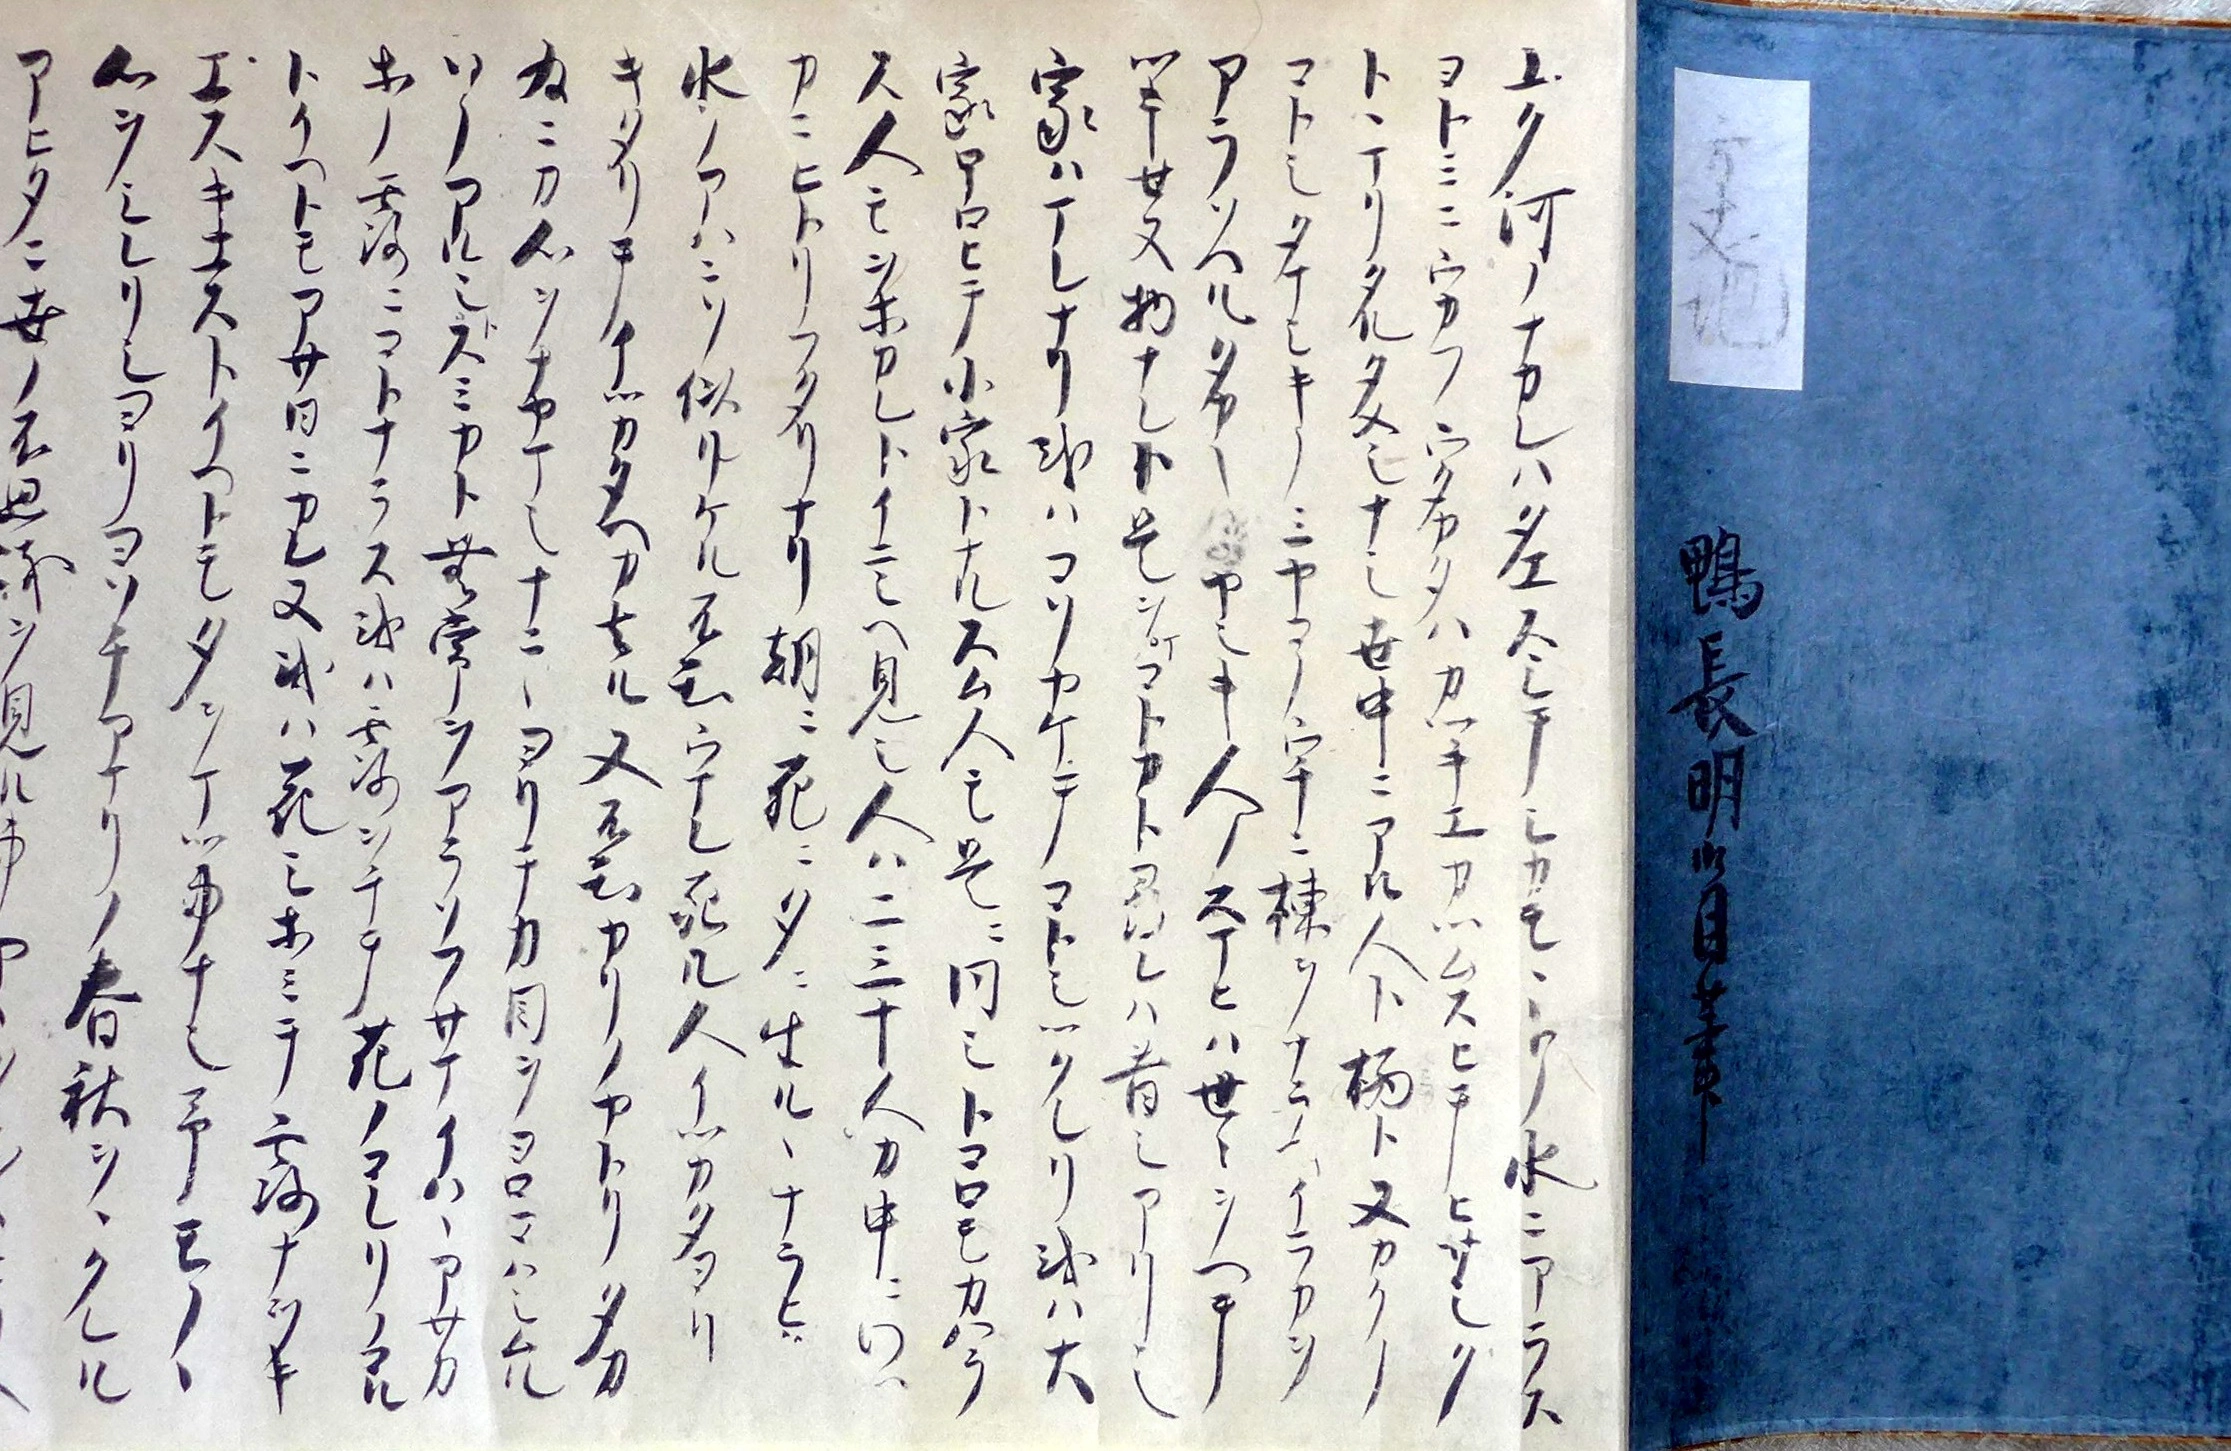 鴨長明自筆
ユク河ノナカレハタエスシテシカモヽトノ水ニアラス
ヨトミニウカフウタカタハカツキエカツムスヒテヒサシク
トヽマリタルタメシナシ世中ニアル人ト栖ト又カクノ
コトシタマシキノミヤコノウチニ棟ヲナラヘイラカヲ
アラソヘルタカキイヤシキ人ノスマヒハ世ヽヲヘテ
ツキセヌ物ナレト是ヲマコトカト尋レハ昔シアリシ
家ハマレナリ或ハコソヤケテコトシツクレリ或ハ大
家ホロヒテ小家トナルスム人モ是ニ同シトコロモカハラ
ス人モヲホカレトイニシヘ見シ人ハ二三十人カ中ニワツ
カニヒトリフタリナリ朝ニ死ニ夕ニ生ルヽナラヒ
水ノアハニソ似リケル不知ウマレ死ル人イツカタヨリ
キタリテイツカタヘカ去ル又不知カリノヤトリタカ
為ニカ心ヲナヤマシナニヽヨリテカ目ヲヨロコハシムル
ソノアルシトスミカト無常ヲアラソフサマイハヽアサカ
ホノ露ニコトナラス或ハ露ヲチテ花ノコレリノコル
トイヘトモアサ日ニカレヌ或ハ花シホミテ露ナヲキ
エスキエストイヘトモタヲマツ事ナシ予モノヽ
心ヲシレリシヨリヨソチアマリノ春秋ヲヽクレル
アヒタニ世ノ不思議ヲ見ル事